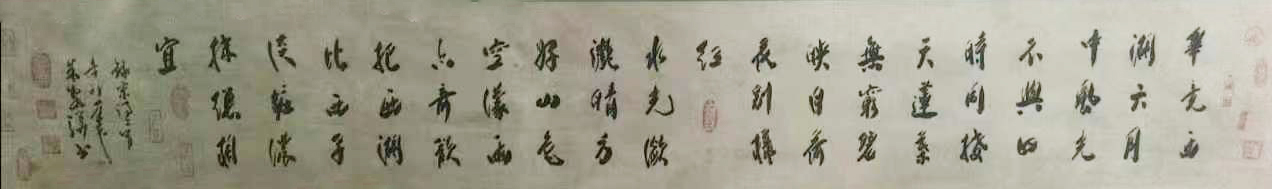 畢竟西
湖六月
中風光
不與四
時同接
天蓮葉
無窮碧
映日荷
花別樣
紅
水光瀲
灧晴方
好山色
空濛雨
亦奇欲
把西湖
比西子
淡妝濃
抹總相
宜